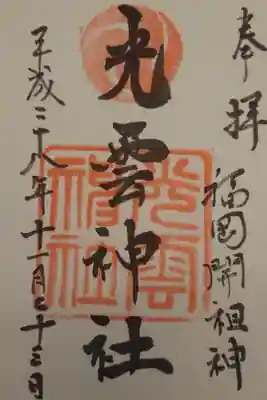 奉拝
福岡開祖神
光雲神社
光雲神社
平成二十八年十一月二十三日